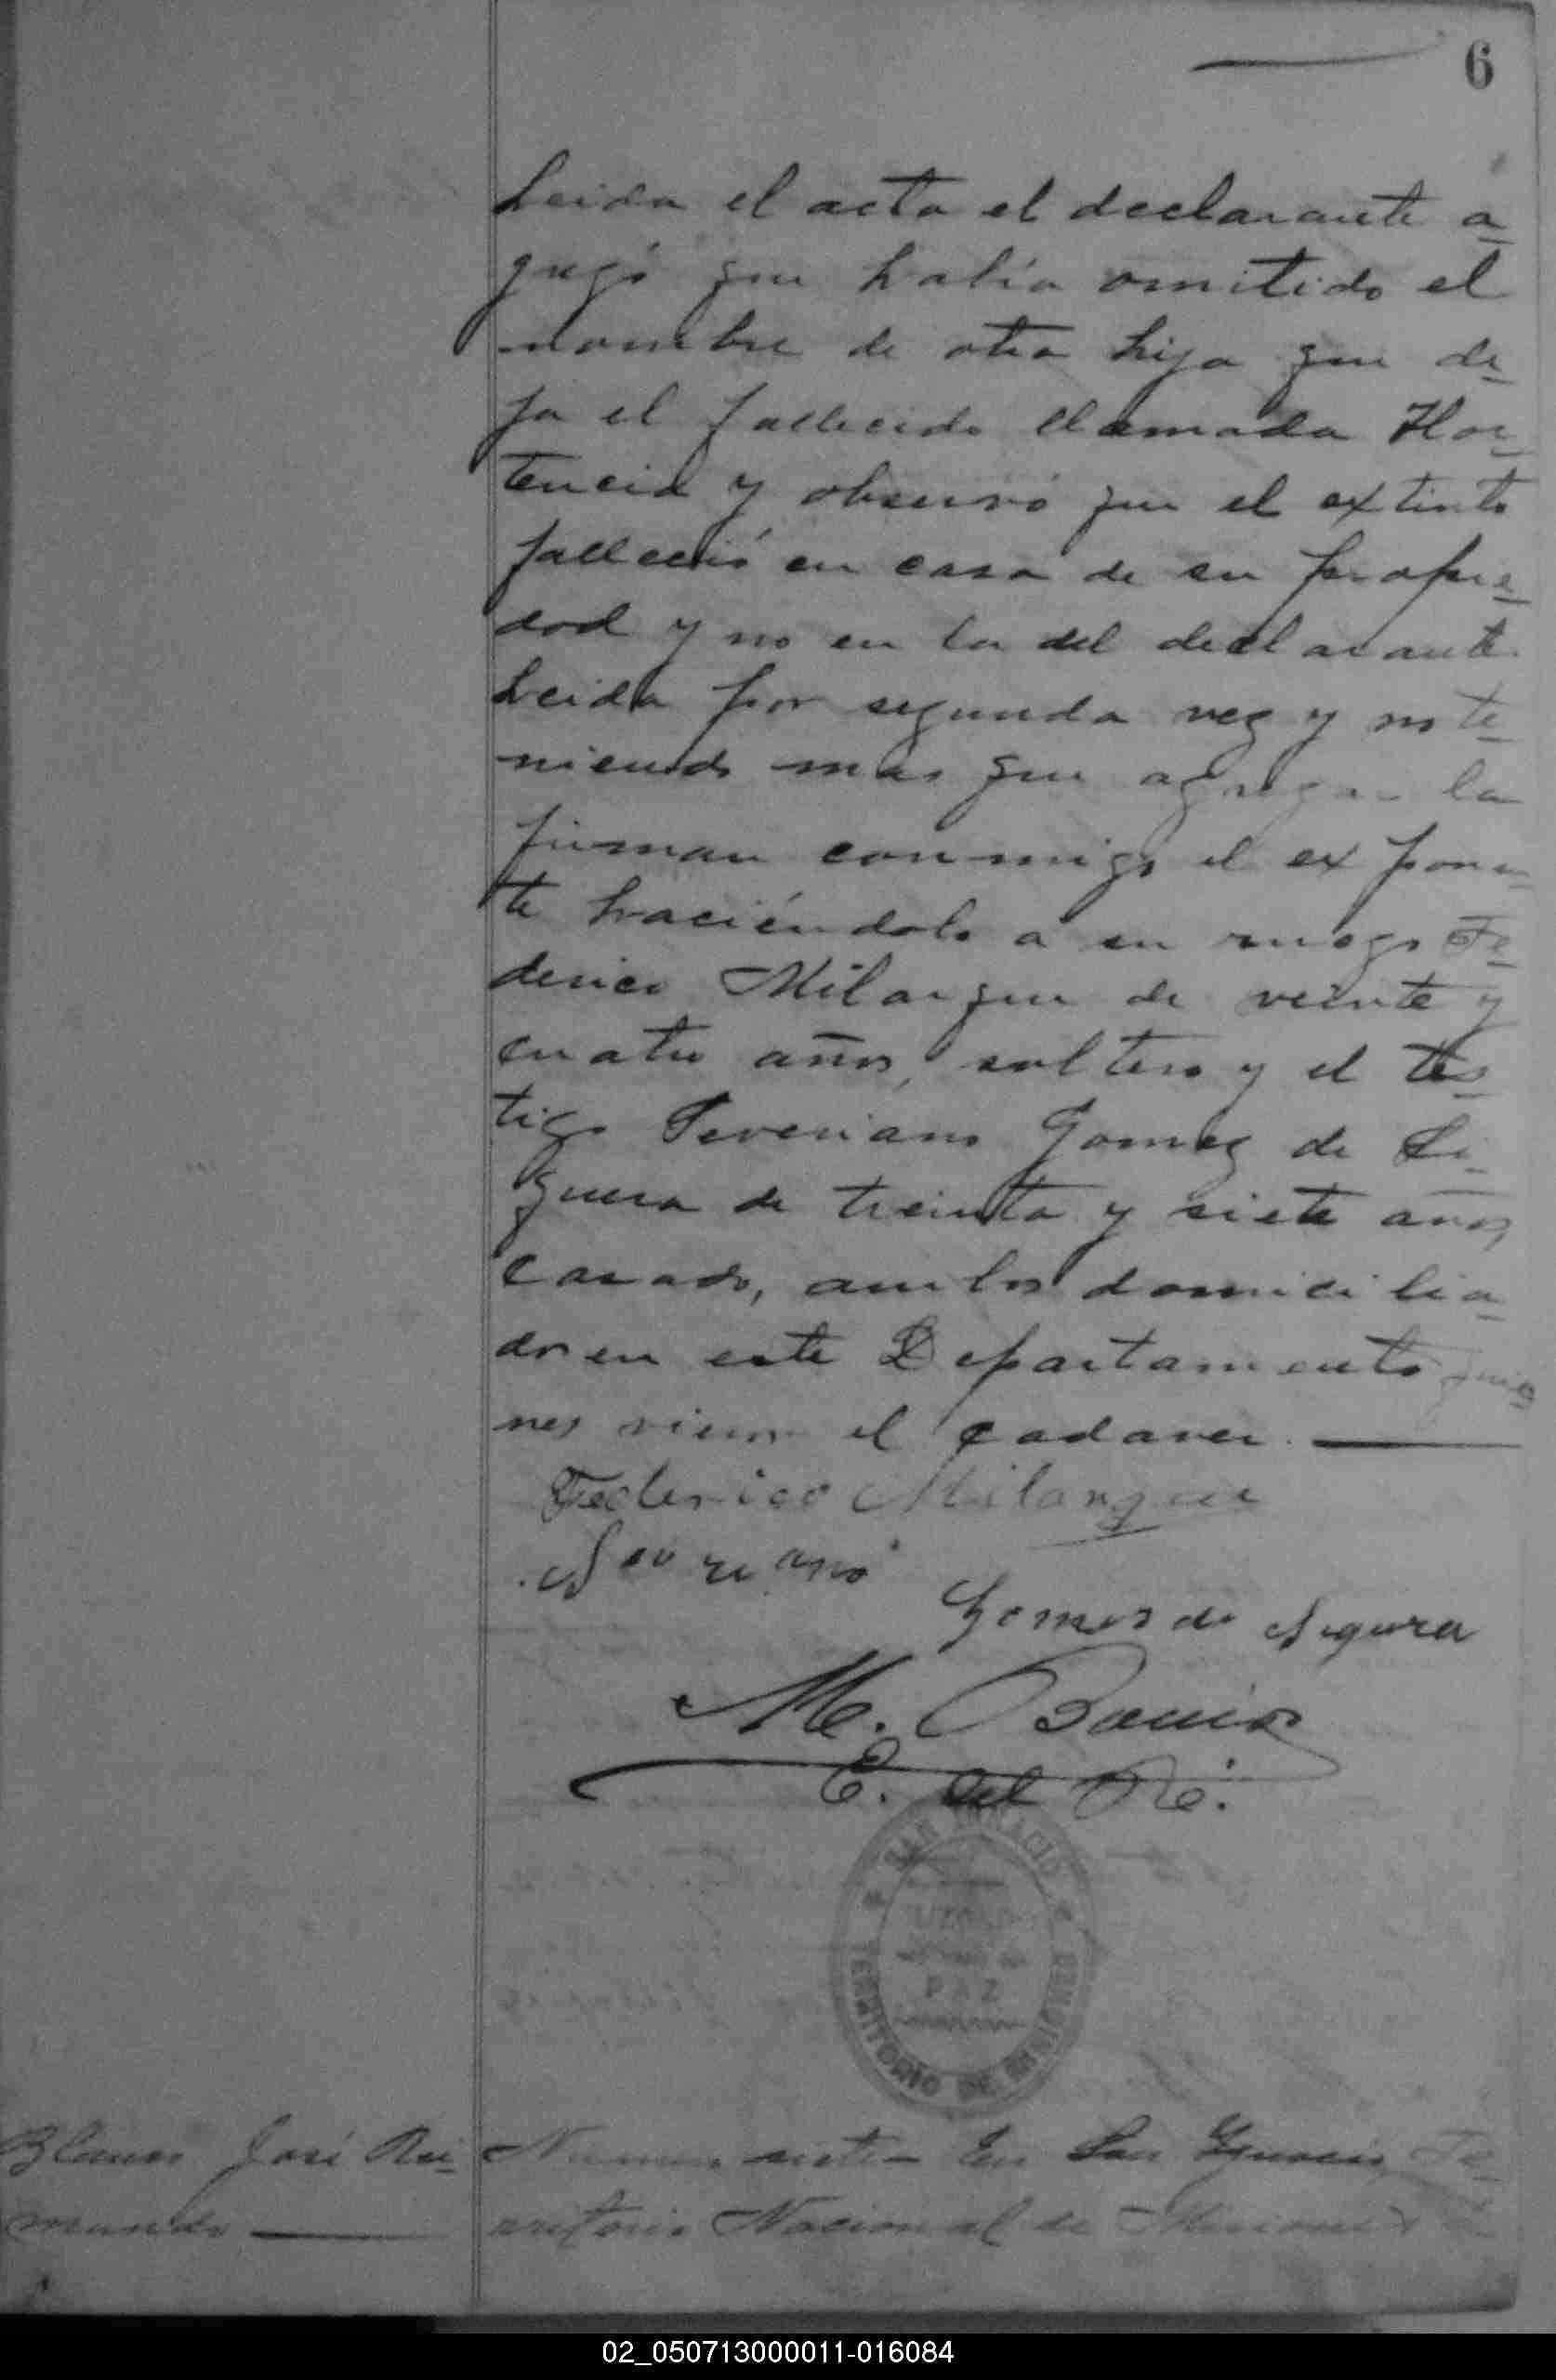 6
Leida el acta el declarante a-
gregó que había omitido el
nombre de otra hija que de-
ja el fallecido llamada Hor-
tencia y observó que el extinto
falleció en casa de su propie-
dad y no en la del declarante.
Leida por segunda vez y no te-
niendo mas que agregar la
firman conmigo el exponen-
te haciéndolo a su ruego Fe-
derico Milarque de veinte y
cuatro años, soltero y el tes-
tigo Severiano Gomez de Si-
guera de treinta y siete años,
casado, ambos domicilia-
dos en este Departamento quie-
nes vieron el cadaver.
Federico Milarque
Severiano
Gomes de Sigura
M.
E. del R. C.
SAN IGNACIO
JUZGADO
DE
PAZ
TERRITORIO DE MISIONES
Blanco José Rai-
mundo
Numero siete En San Ygnacio, Te-
rritorio Nacional de Misiones á
02_050713000011-016084